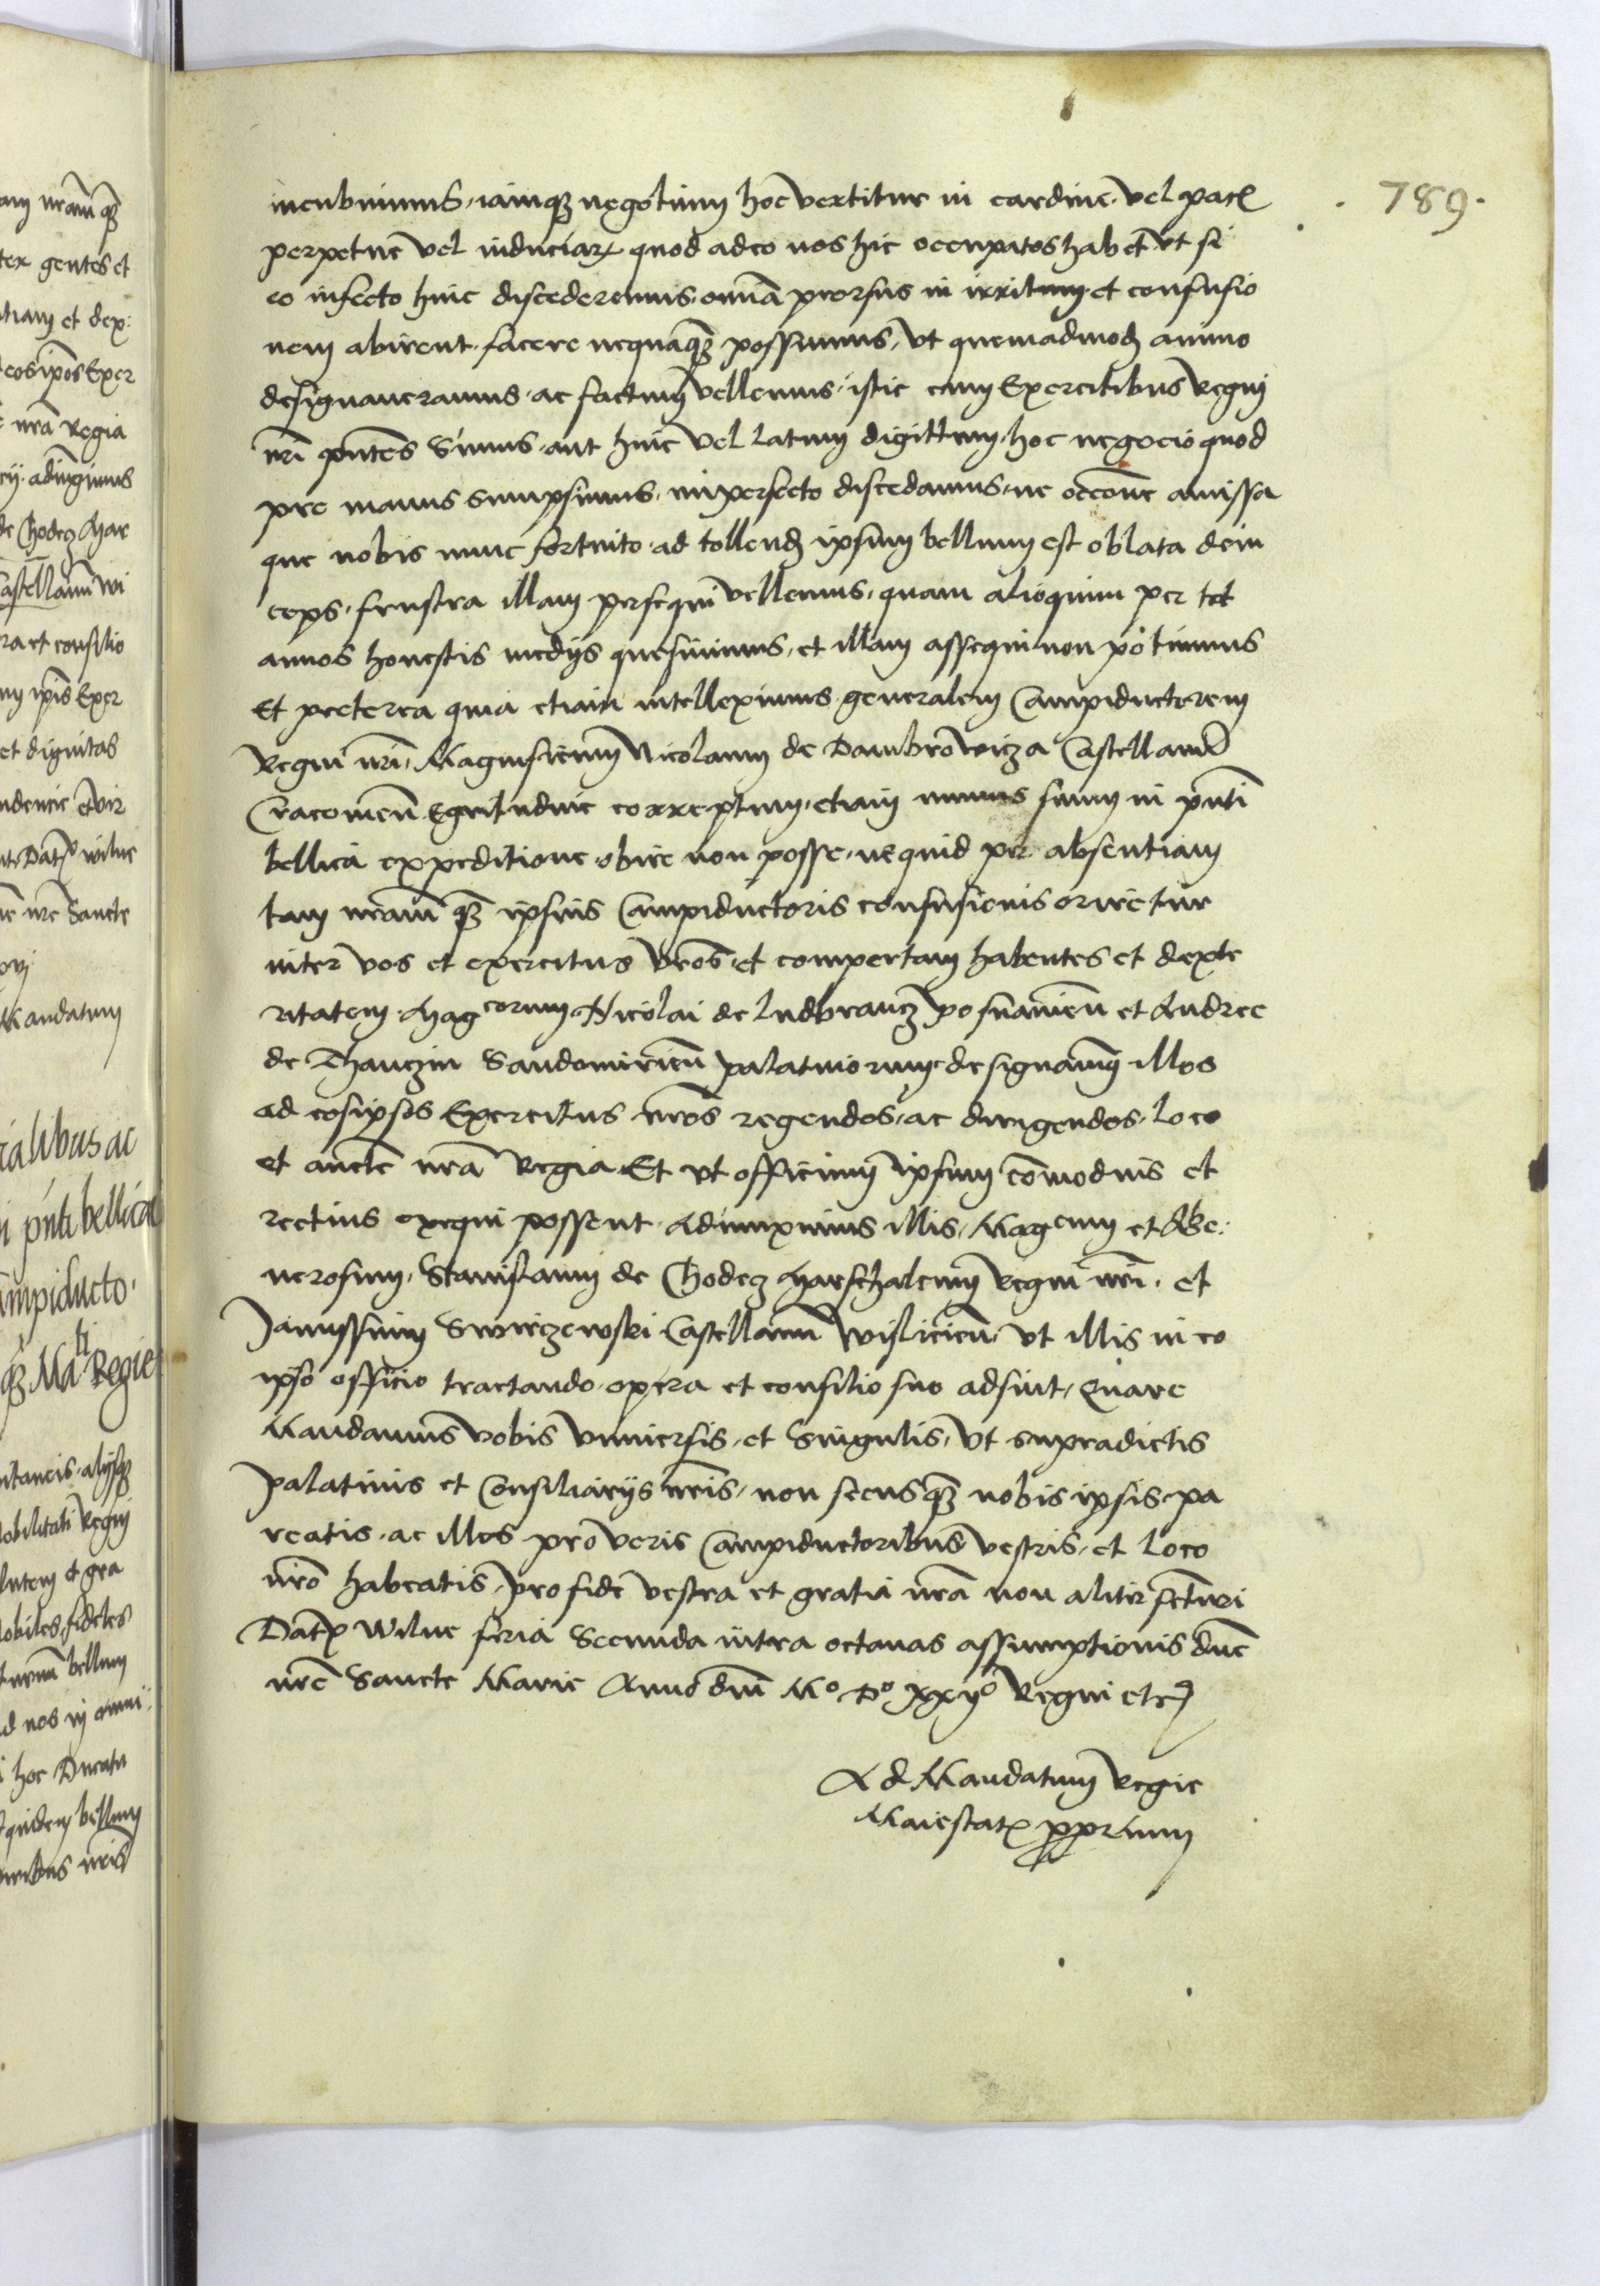 789
incubuimus, iamqȝ negotium hoc vertitur in cardine, vel pacꝭ
perpetue vel induciaꝝ quod adeo nos hic occupatos habet vt si
eo infecto hinc discederemus, omīa prorsus in irritum et confusio
nem abirent, facere nequaqȝ possumus, vt quemadmodȝ animo
designaueramus, ac factum vellemus, istic cum Exercitibus Regni
nr̄i pn̄tes Simus, aut hinc vel latum digittum, hoc negocio quod
pre manus sumpsimus, imperfecto discedamus, ne occōne amissa
que nobis nunc fortuito ad tollendȝ ipsum bellum est oblata dein
ceps, frustra illam persequi vellemus, quam alioquin per tot
annos honestis medijs quesiuimus, et illam assequi non potuimus
Et preterea quia etiam intelleximus generalem Campiductorem
Regni nr̄i, Magnificum Nicolaum de Dambrowicza Castellanū
Cracouien̄ Egritudine correptum, etiam munus suum in pn̄ti
bellica expeditione obire non posse, ne quid per absentiam
tam nr̄am qȝ ipsius Campiductoris confusionis oriretur
inter vos et exercitus vr̄os, et compertam habentes et dexte
ritatem Magcorum Nicolai de Ludbrancȝ posnanien̄ et Andree
de Thanczin Sandomirien̄ palatinorum, designamꝰ illos
ad eosipsos Exercitus nr̄os regendos, ac dirigendos, loco
et aucte nr̄a Regia, Et vt officium ipsum cōmodius et
rectius exequi possent, Adiunximus illis, Magcum et Ge:
nerosum, Stanislaum de Chodecȝ Marschalcum Regni nr̄i, et
Janussium Swirczewski Castellanū Wislicien̄, vt illis in eo
ipso officio tractando, opera et consilio suo adsint, Quare
Mandamus vobis vniuersis, et Singulis, vt supradictis
Palatinis et Consiliarijs nr̄is, non secus qȝ nobis ipsis pa
reatis, ac illos pro veris Campiductoribus vestris, et loco
nr̄o habeatis, pro fide vestra et gratia nr̄a non aliter fc̄turi
Datꝭ Wilne feria Secunda intra octauas assumptionis dn̄e
nr̄e Sancte Marie Anno dn̄i Mo Do xxijo Regni etc
Ad Mandatum Regie
Maiestatꝭ pprium